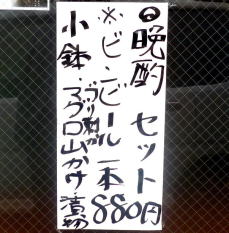 ◎晩酌セット
※ビンビール一本880円
小鉢・ブリ刺か
マグロ山かけ・漬物